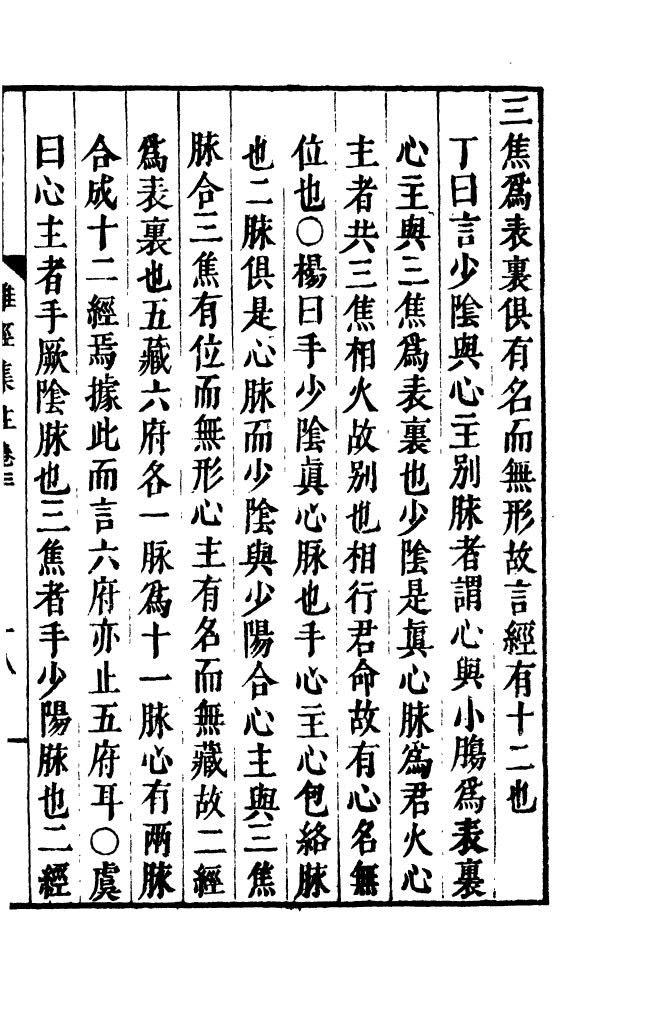 三焦爲表裏俱有名而無形故言經有十二也
丁曰言少陰與心主別脉者謂心與小膓爲表裏
心主與三焦爲表裏也少陰是眞心脉爲君火心
主者共三焦相火故別也相行君命故有心名無
位也○楊曰手少陰眞心脉也手心主心包絡脉
也二脉俱是心脉而少陰與少陽合心主與三焦
脉合三焦有位而無形心主有名而無藏故二經
爲表裏也五藏六府各一脉爲十一脉心有兩脉
合成十二經焉據此而言六府亦止五府耳○虞
曰心主者手厥陰脉也三焦者手少陽脉也二經
難經集註卷三
十八